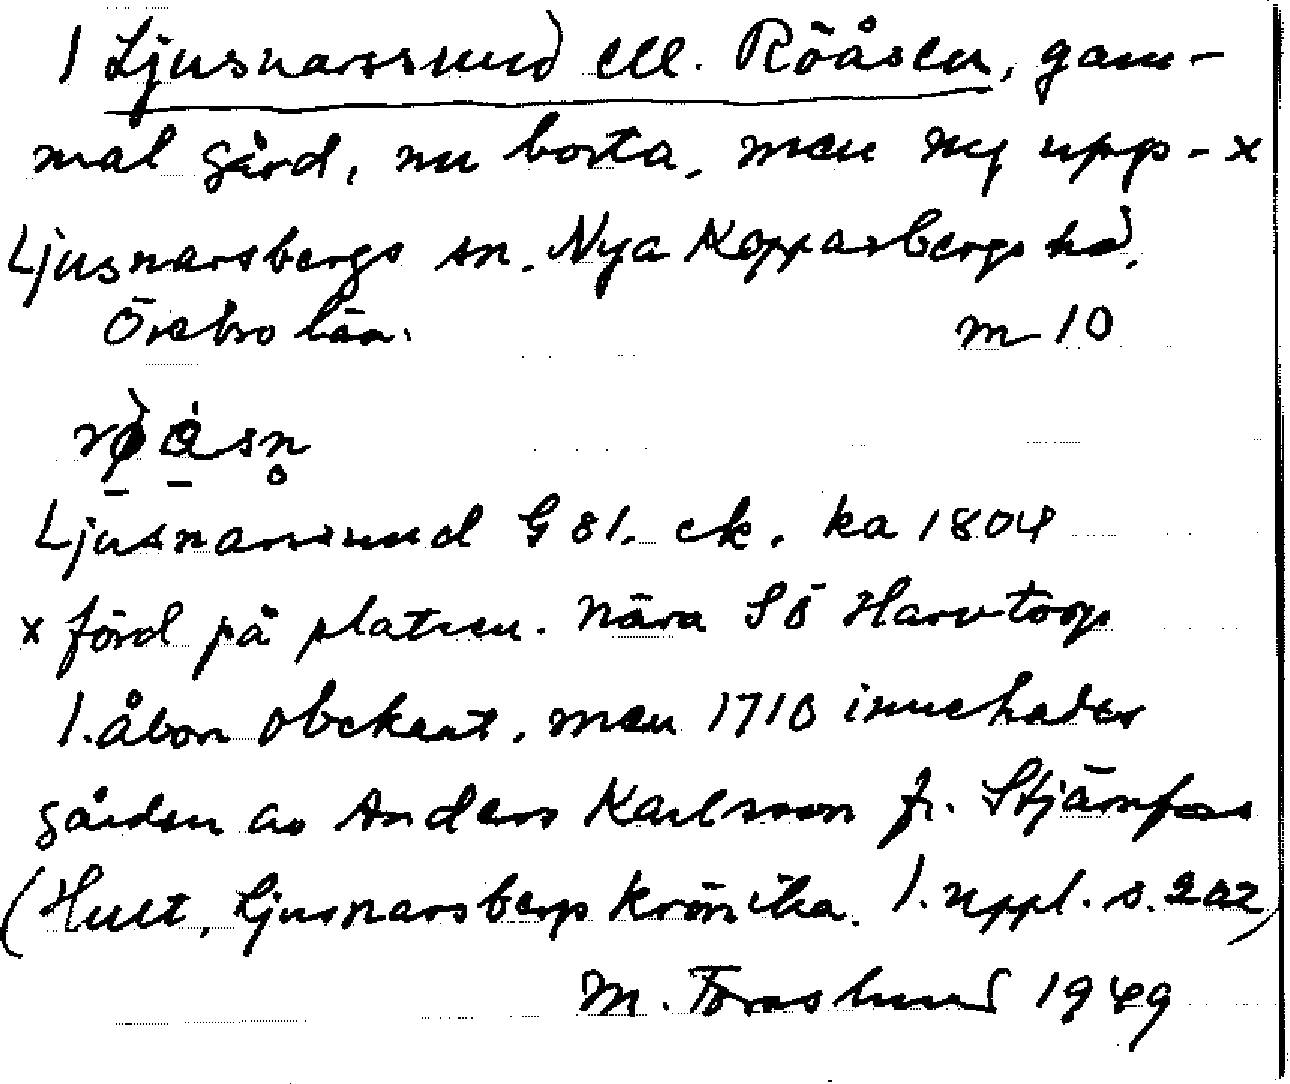 1 Ljusnarssund ell. Röåsen, gam-
mal gård, nu borta, men ny upp- x
Ljusnarsbergs sn. Nya Kopparbergs hd.
Örebro län. m 10
Ljusnarssund G 81. ek. ka 1804
x förd på platsen. nära Sö Harvtorp
1. åbon obekant, men 1710 innehades
gården av Anders Karlsson fr. Stjärnfors
(Hult, Ljusnarsbergs krönika. 1. uppl. s. 202)
M. 1949